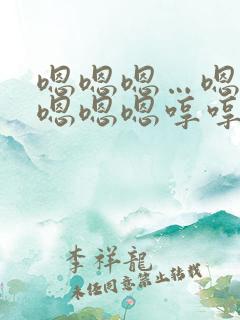 嗯嗯嗯…嗯
嗯嗯嗯哼哼
李祥龍
未经同意禁止转载